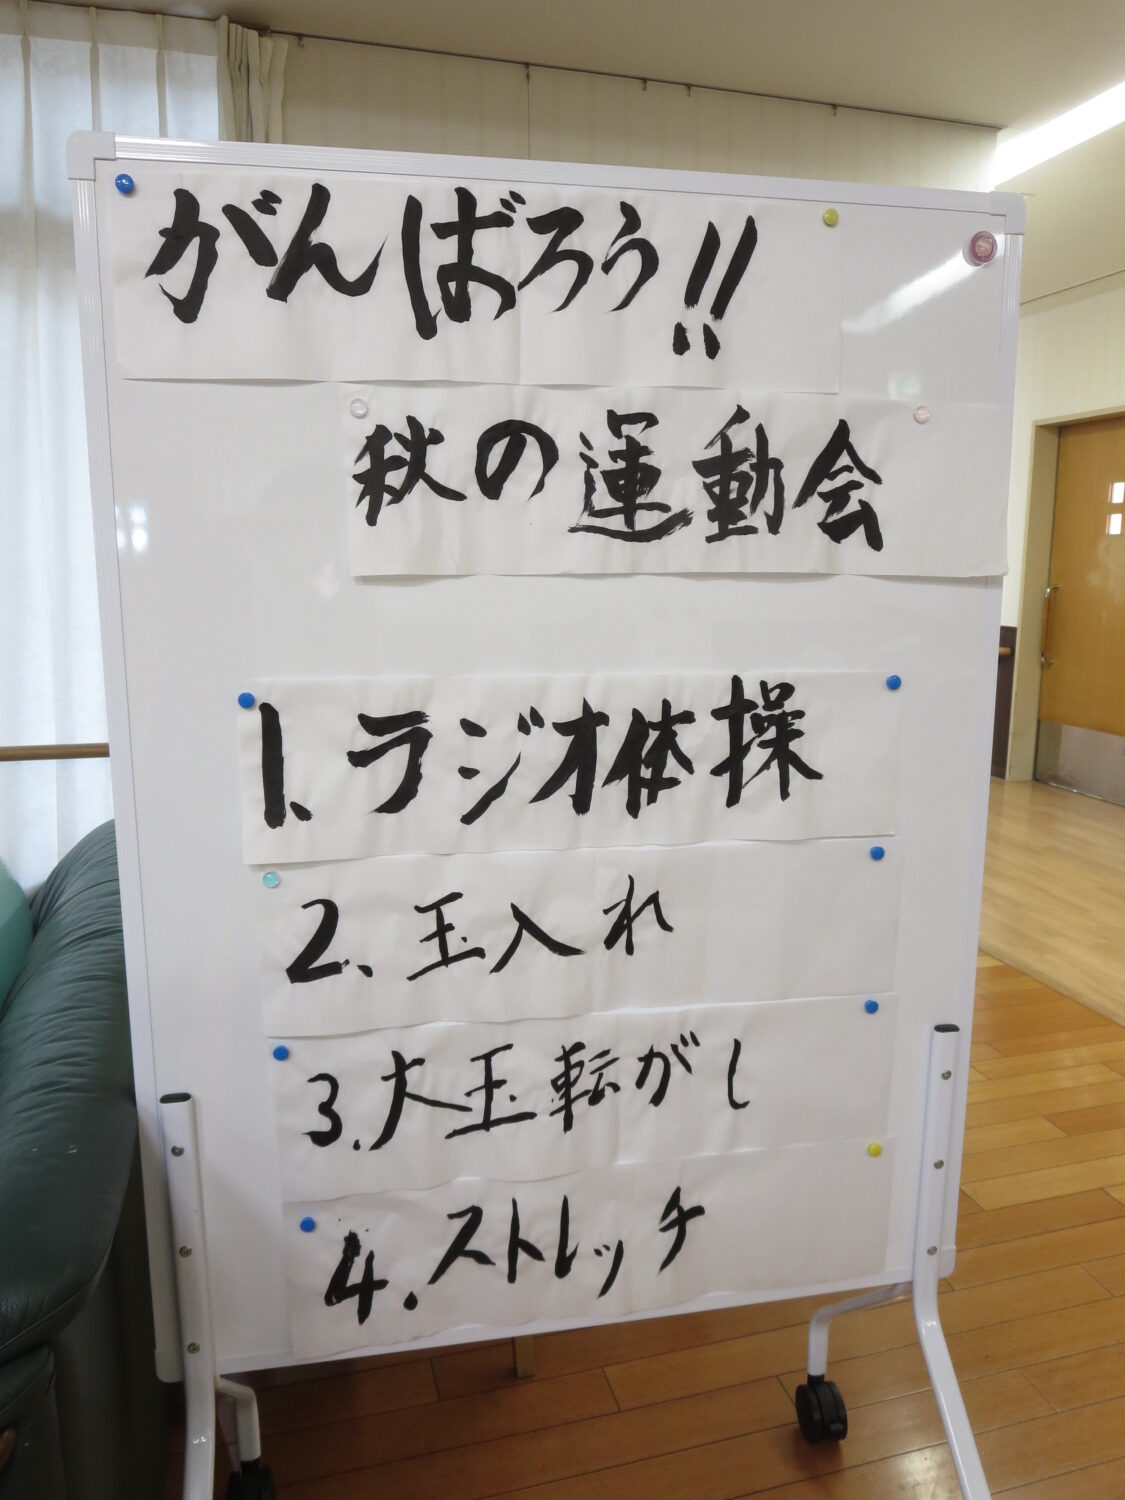 がんばろう!!
秋の運動会
1、ラジオ体操
2、玉入れ
3.大玉転がし
4.ストレッチ